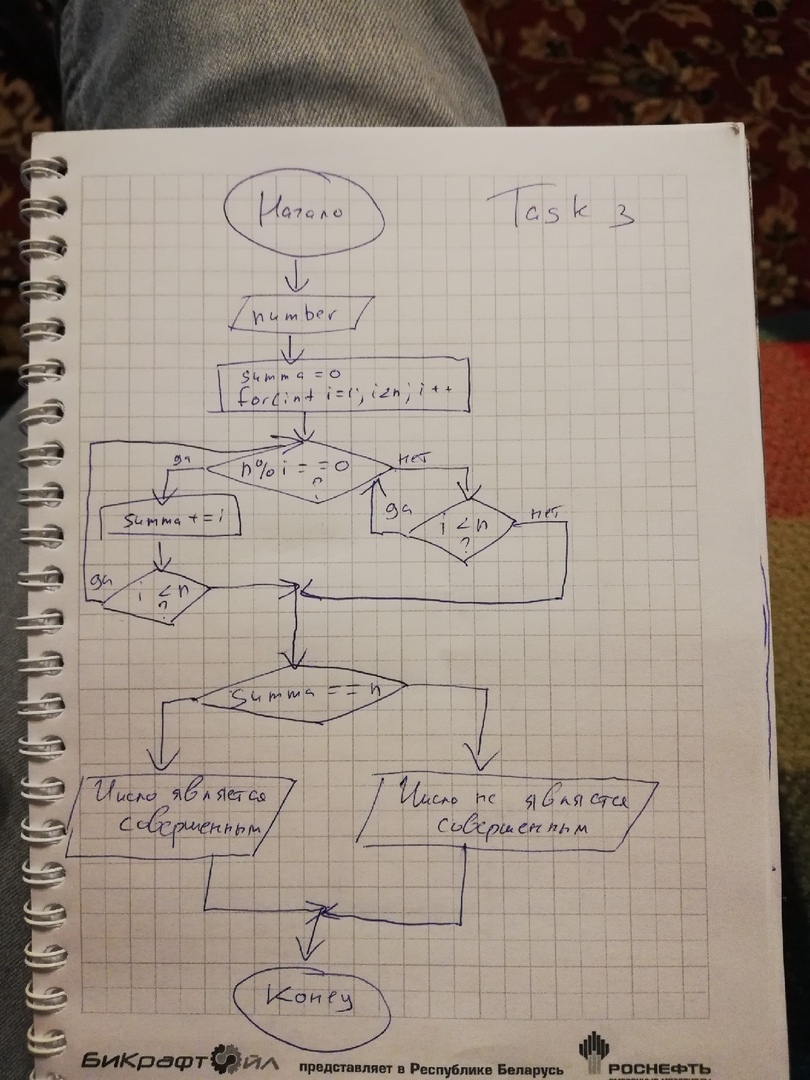 Начало
Task 3
number
summa = 0
for(int i=1; i<n; i++
да
n% i = =0
?
нет
summa += i
да
i <n
?
нет
да
i <n
?
Summa == n
Число является
совершенным
Число не является
совершенным
Конец
БиКрафт Ойл
представляет в Республике Беларусь
РОСНЕФТЬ